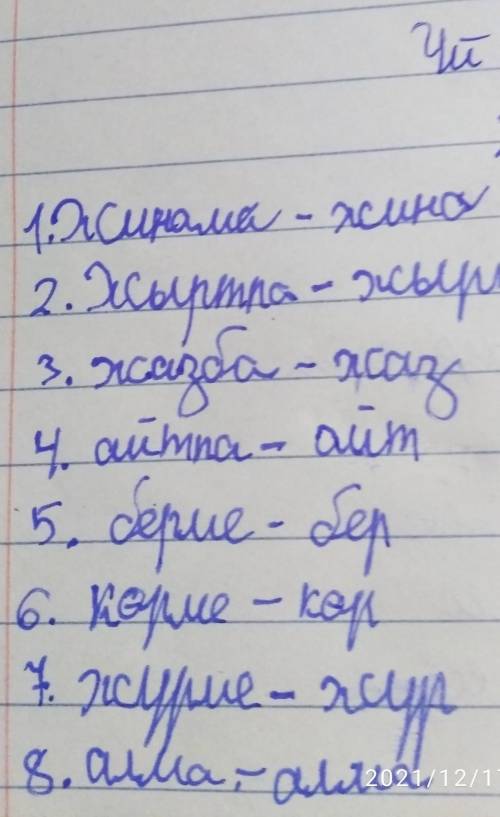 Үй
1. Жинама - жина
2. Жыртпа - жырт
3. жазба - жаз
4. айтпа - айт
5. берме - бер
6. көрме - көр
7. жүрме - жүр
8. алма -
2021/12/17